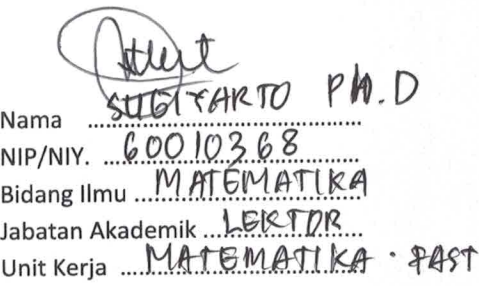 Nama SUGIYARTO Ph.D
NIP/NIY. 60010368
Bidang Ilmu MATEMATIKA
Jabatan Akademik LEKTOR
Unit Kerja MATEMATIKA · FAST